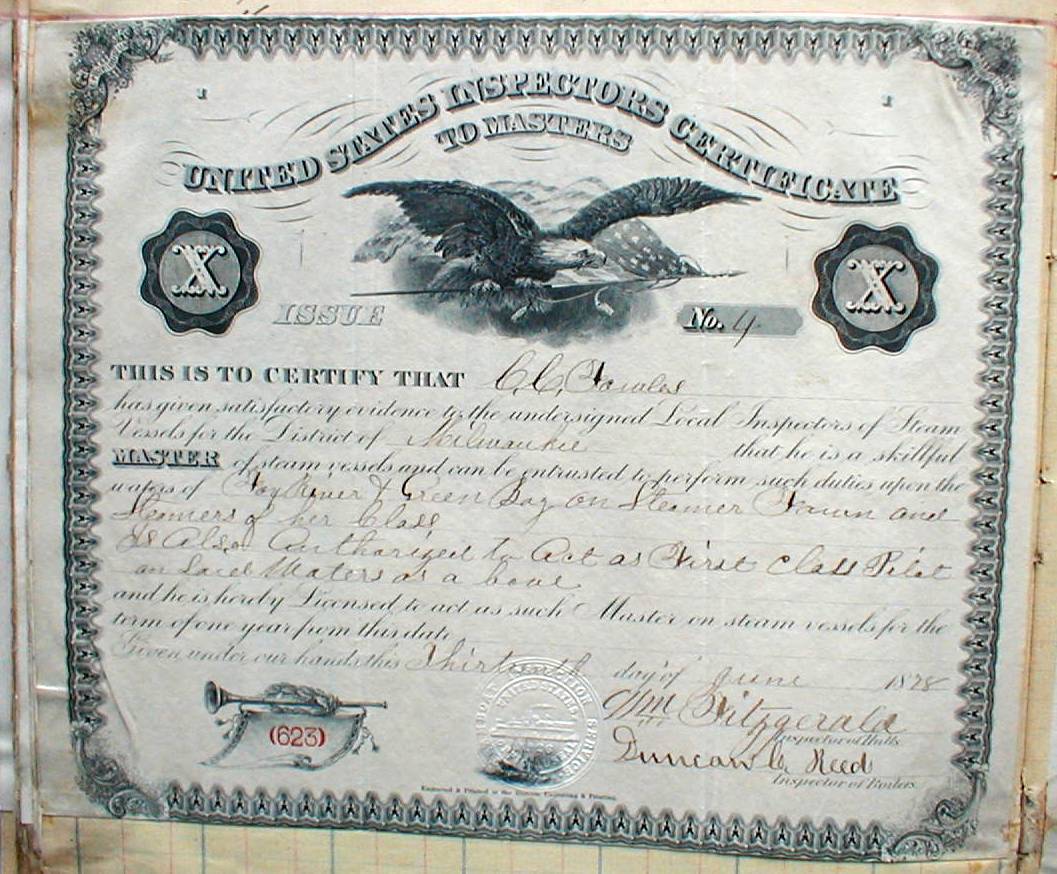 I I
UNITED STATES INSPECTORS CERTIFICATE
TO MASTERS
X X
ISSUE No. 4
THIS IS TO CERTIFY THAT C. C. Fowles
has given satisfactory evidence to the undersigned Local Inspectors of Steam
Vessels for the District of Milwaukie that he is a skillful
MASTER of steam vessels and can be entrusted to perform such duties upon the
waters of Fox River & Green Bay on Steamer Fawn and
Steamers of her Class
Is Also Authorized to Act as First Class Pilot
on Said Waters as a bove
and he is hereby Licensed to act as such Master on steam vessels for the
term of one year from this date.
Given under our hands this Thirteenth day of June 1878
Wm Fitzgerald
Inspector of Hulls.
(623)
Duncan C. Reed
Inspector of Boilers.
Engraved & Printed at the Bureau, Engraving & Printing.